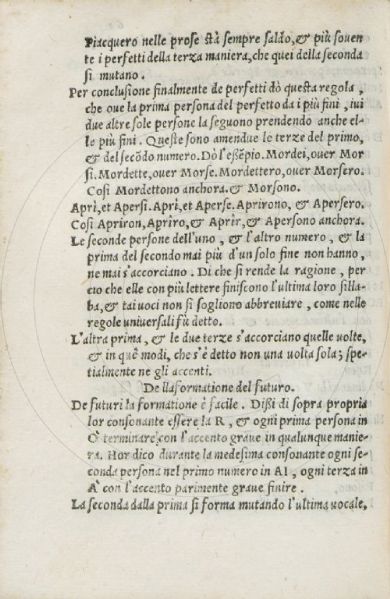 Piacquero nelle prose stà sempre saldo, & più souen
te i perfetti della terza maniera, che quei della seconda
si mutano.
Per conclusione finalmente de perfetti dò questa regola,
che oue la prima persona del perfetto da i più fini, iui
due altre sole persone la seguono prendendo anche el-
le più fini. Queste sono amendue le terze del primo,
& del secõdo numero. Dò l'essẽpio. Mordei, ouer Mor
si. Mordette, ouer Morse. Mordettero, ouer Morsero.
Cosi Mordettono anchora. & Morsono.
Aprì, et Apersi. Aprì, et Aperse. Aprirono, & Apersero.
Cosi Apriron, Aprîro, & Aprîr, & Apersono anchora.
Le seconde persone dell'uno, & l'altro numero, & la
prima del secondo mai più d'un solo fine non hanno,
ne mai s'accorciano. Di che si rende la ragione, per
cio che elle con più lettere finiscono l'ultima loro silla-
ba, & tai uoci non si sogliono abbreuiare, come nelle
regole uniuersali fù detto.
L'altra prima, & le due terze s'accorciano quelle uolte,
& in que modi, che s'è detto non una uolta sola; spe-
tialmente ne gli accenti.
De llaformatione del futuro.
De futuri la formatione è facile. Dißi di sopra propria
lor consonante essere la R, & ogni prima persona in
Ò terminare con l'accento graue in qualunque manie-
ra. Hor dico durante la medesima consonante ogni se-
conda persona nel primo numero in AI, ogni terza in
À con l'accento parimente graue finire.
La seconda dalla prima si forma mutando l'ultima uocale,